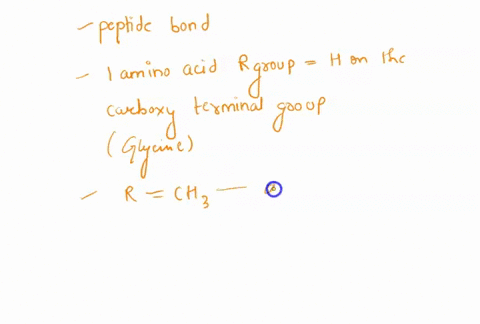 - peptide bond
- 1 amino acid R group = H on the
carboxy terminal group
(Glycine)
- R = CH3 —